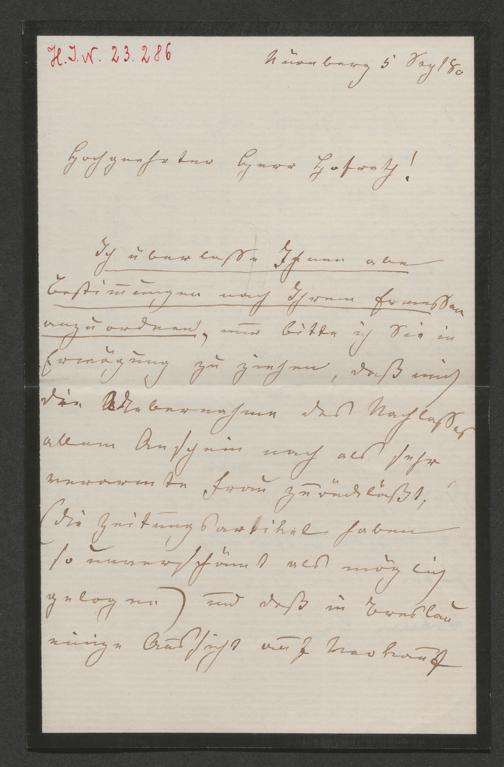 H.I.N. 23.286
Nürnberg 5 80
Hochgeehrter Herr Hofrath!
Ich überlasse Ihnen
Bestimmungen nach Ihrem Ermessen
anzuordnen, nur bitte ich Sie in
Erwägung zu ziehen, daß mich
die Uebernahme des Nachlasses
allem Anschein nach als sehr
verarmte Frau zurückläßt,
(die Zeitungsartikel haben
so unverschämt als möglich
gelogen) und daß in Breslau
einige Aussicht auf Verkauf